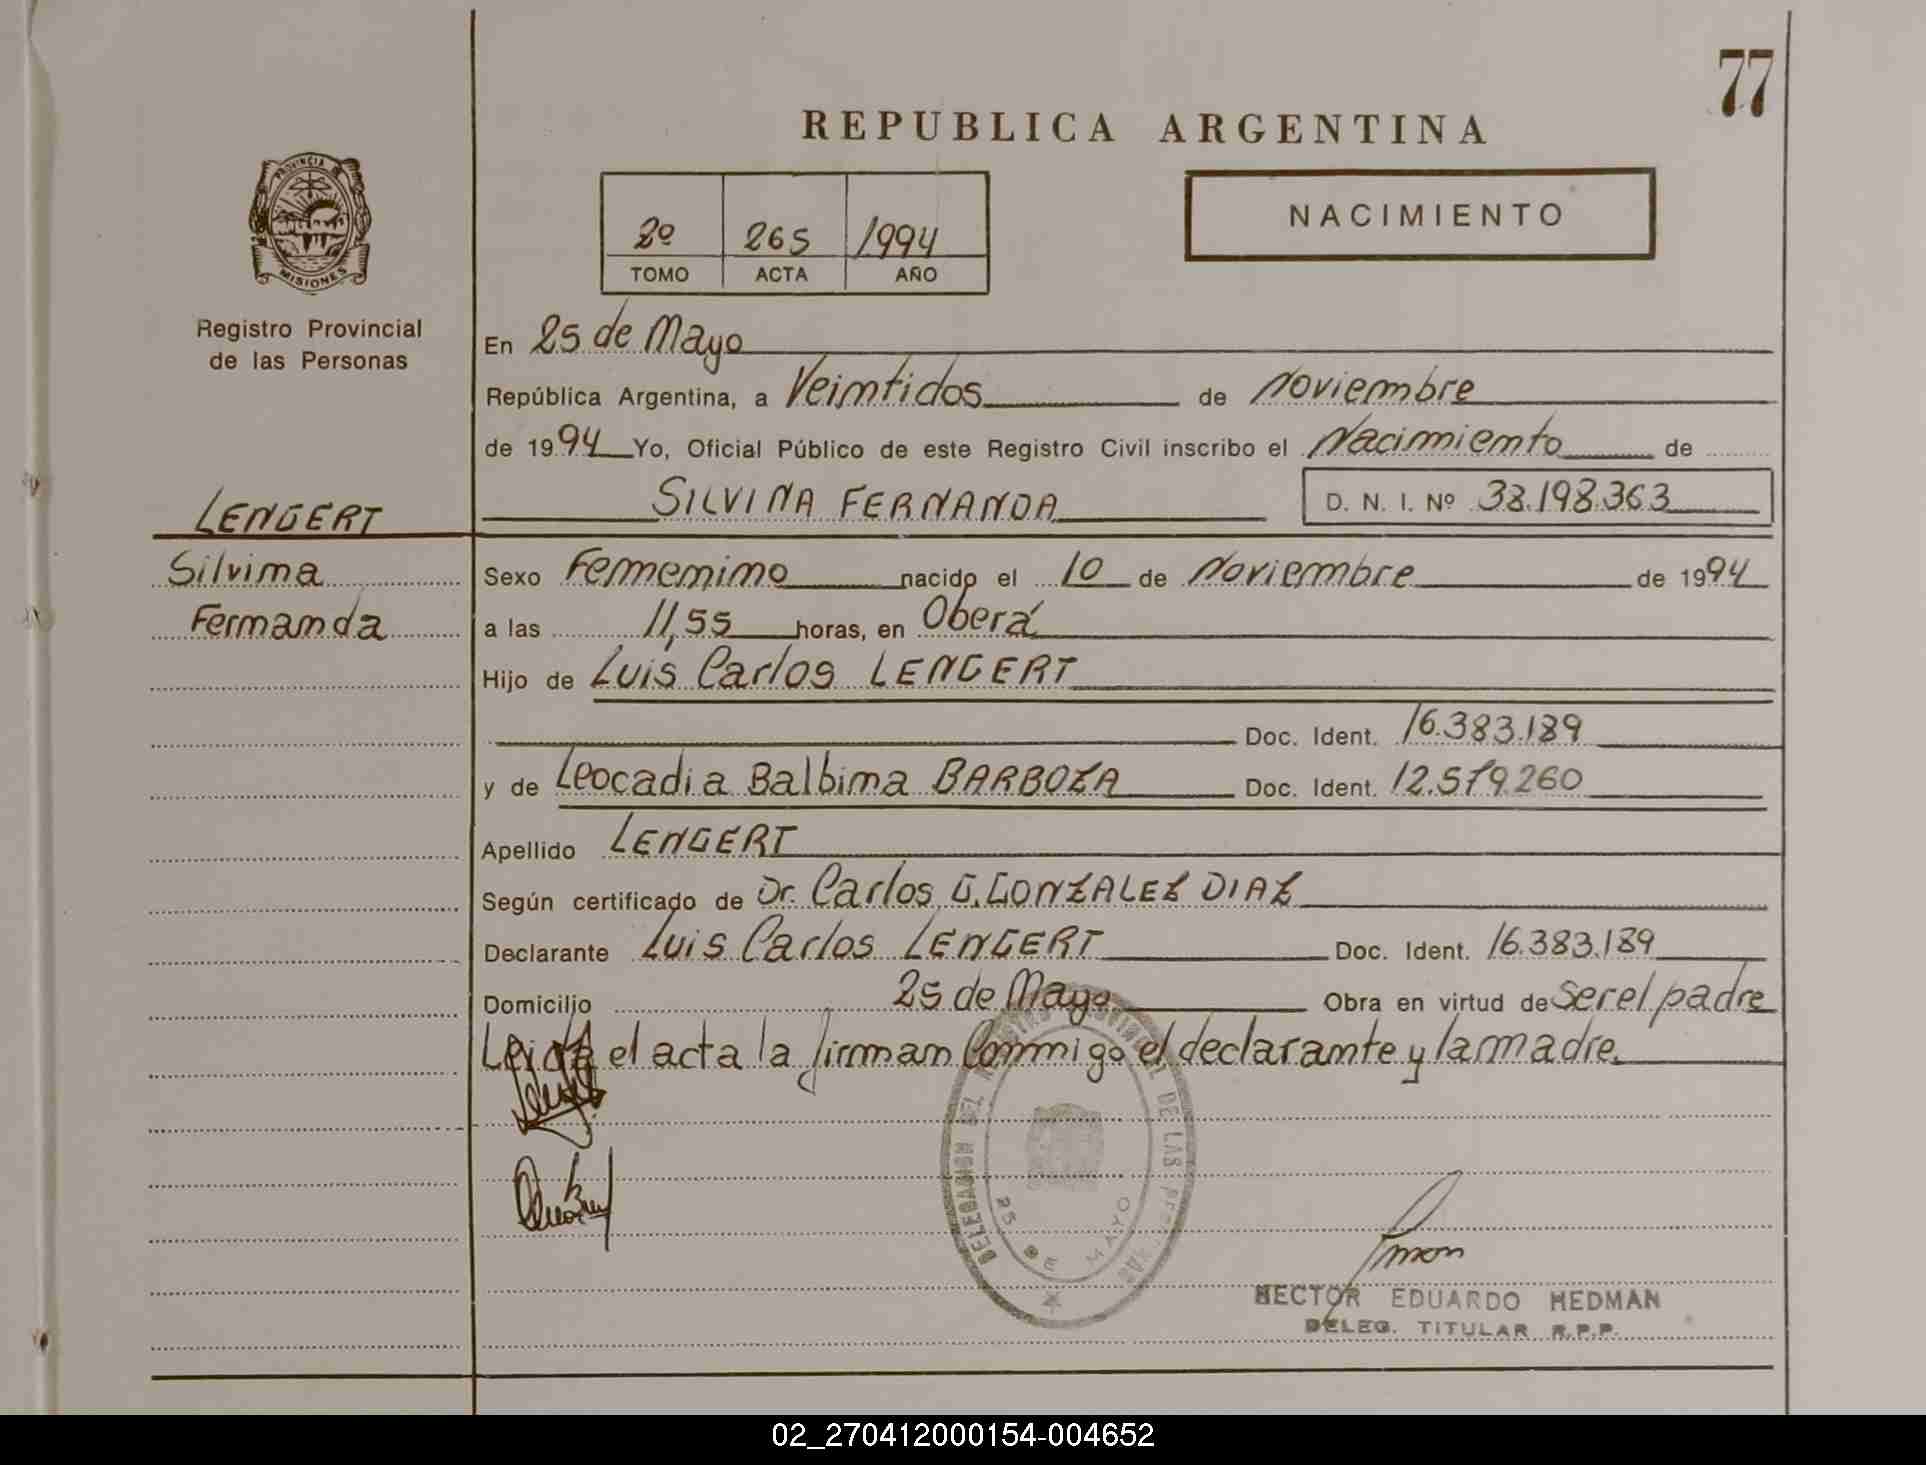 77
REPUBLICA ARGENTINA
PROVINCIA DE
MISIONES
2º 265 1994
TOMO ACTA AÑO
NACIMIENTO
Registro Provincial
de las Personas
En 25 de Mayo
República Argentina, a Veintidos de Noviembre
de 1994 Yo, Oficial Público de este Registro Civil inscribo el Nacimiento de
LENGERT
SILVINA FERNANDA D. N. I. Nº 38.198.363
Silvina
Sexo Femenino nacido el 10 de Noviembre de 1994
Fernanda
a las 11,55 horas, en Oberá
Hijo de Luis Carlos LENGERT
Doc. Ident. 16.383.189
y de Leocadia Balbina BARBOZA Doc. Ident. 12.579.260
Apellido LENGERT
Según certificado de Dr. Carlos G. GONZALEZ DIAZ
Declarante Luis Carlos LENGERT Doc. Ident. 16.383.189
Domicilio 25 de Mayo Obra en virtud de ser el padre
Leida el acta la firman conmigo el declarante y la madre.
DELEGACION DEL REGISTRO PROVINCIAL DE LAS PERSONAS
25 DE MAYO
HECTOR EDUARDO HEDMAN
DELEG. TITULAR R.P.P.
02_270412000154-004652